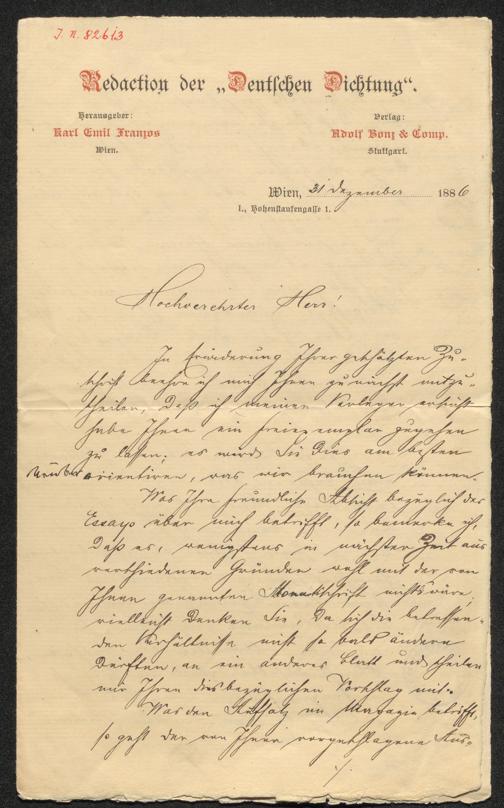 J. N. 82613
Redaction der „Deutschen Dichtung“.
Herausgeber:
Karl Emil Franzos
Wien.
Verlag:
Adolf Bonz & Comp.
Stuttgart.
Wien, 31 Dezember 1886
I., Hohenstaufengasse 1.
Hochverehrter Herr!
In Erwiederung Ihrer geschätzten Zu-
schrift beehre ich mich Ihnen zunächst mitzu-
theilen, daß ich meinen Verleger ersucht
habe Ihnen ein Freiexemplar zugehen
zu lassen; es wird Sie dies am besten
darüber orientiren, was wir brauchen können.
Was Ihre freundliche Absicht bezüglich des
Essays über mich betrifft, so bemerke ich,
daß es, wenigstens in nächster Zeit aus
verschiedenen Gründen wohl mit der von
Ihnen genannten Monatsschrift nichts wäre,
vielleicht denken Sie, da sich die betreffen-
den Verhältnisse nicht so bald ändern
dürften, an ein anderes Blatt und theilen
mir Ihren diesbezüglichen Vorschlag mit.
Was den Aufsatz im Magazin betrifft,
so geht der von Ihnen vorgeschlagene Aus-
./.